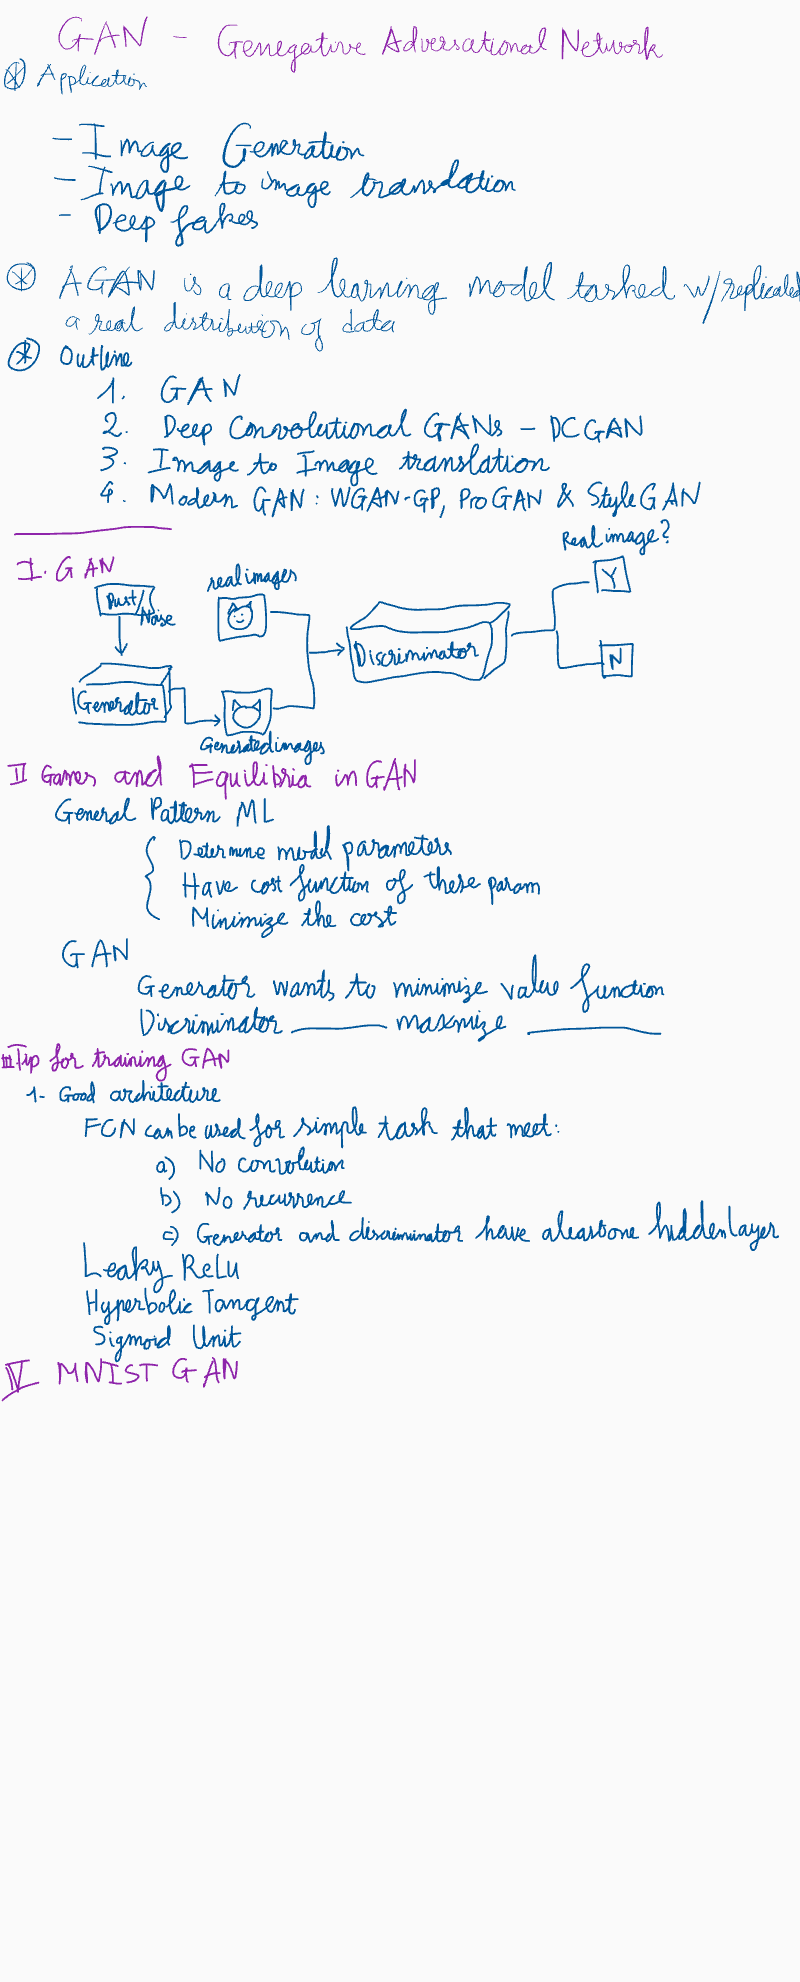 GAN - Genegative Adversational Network
* Application
- Image Generation
- Image to image translation
- Deep fakes
* A GAN is a deep learning model tasked w/replicated
a real distribution of data
* Outline
1. GAN
2. Deep Convolutional GANs - DCGAN
3. Image to Image translation
4. Modern GAN: WGAN-GP, ProGAN & StyleGAN
I. GAN
Real image?
real images
Y
/Noise
Discriminator
N
Generator
Generated images
II Games and Equilibria in GAN
General Pattern ML
Determine model parameters
Have cost function of these param
Minimize the cost
GAN
Generator wants to minimize value function
Discriminator ——— maxmize ———
III Tip for training GAN
1- Good architecture
FCN can be used for simple task that meet:
a) No convolution
b) No recurrence
c) Generator and discriminator have aleast one hidden layer
Leaky ReLu
Hyperbolic Tangent
Sigmoid Unit
IV MNIST GAN